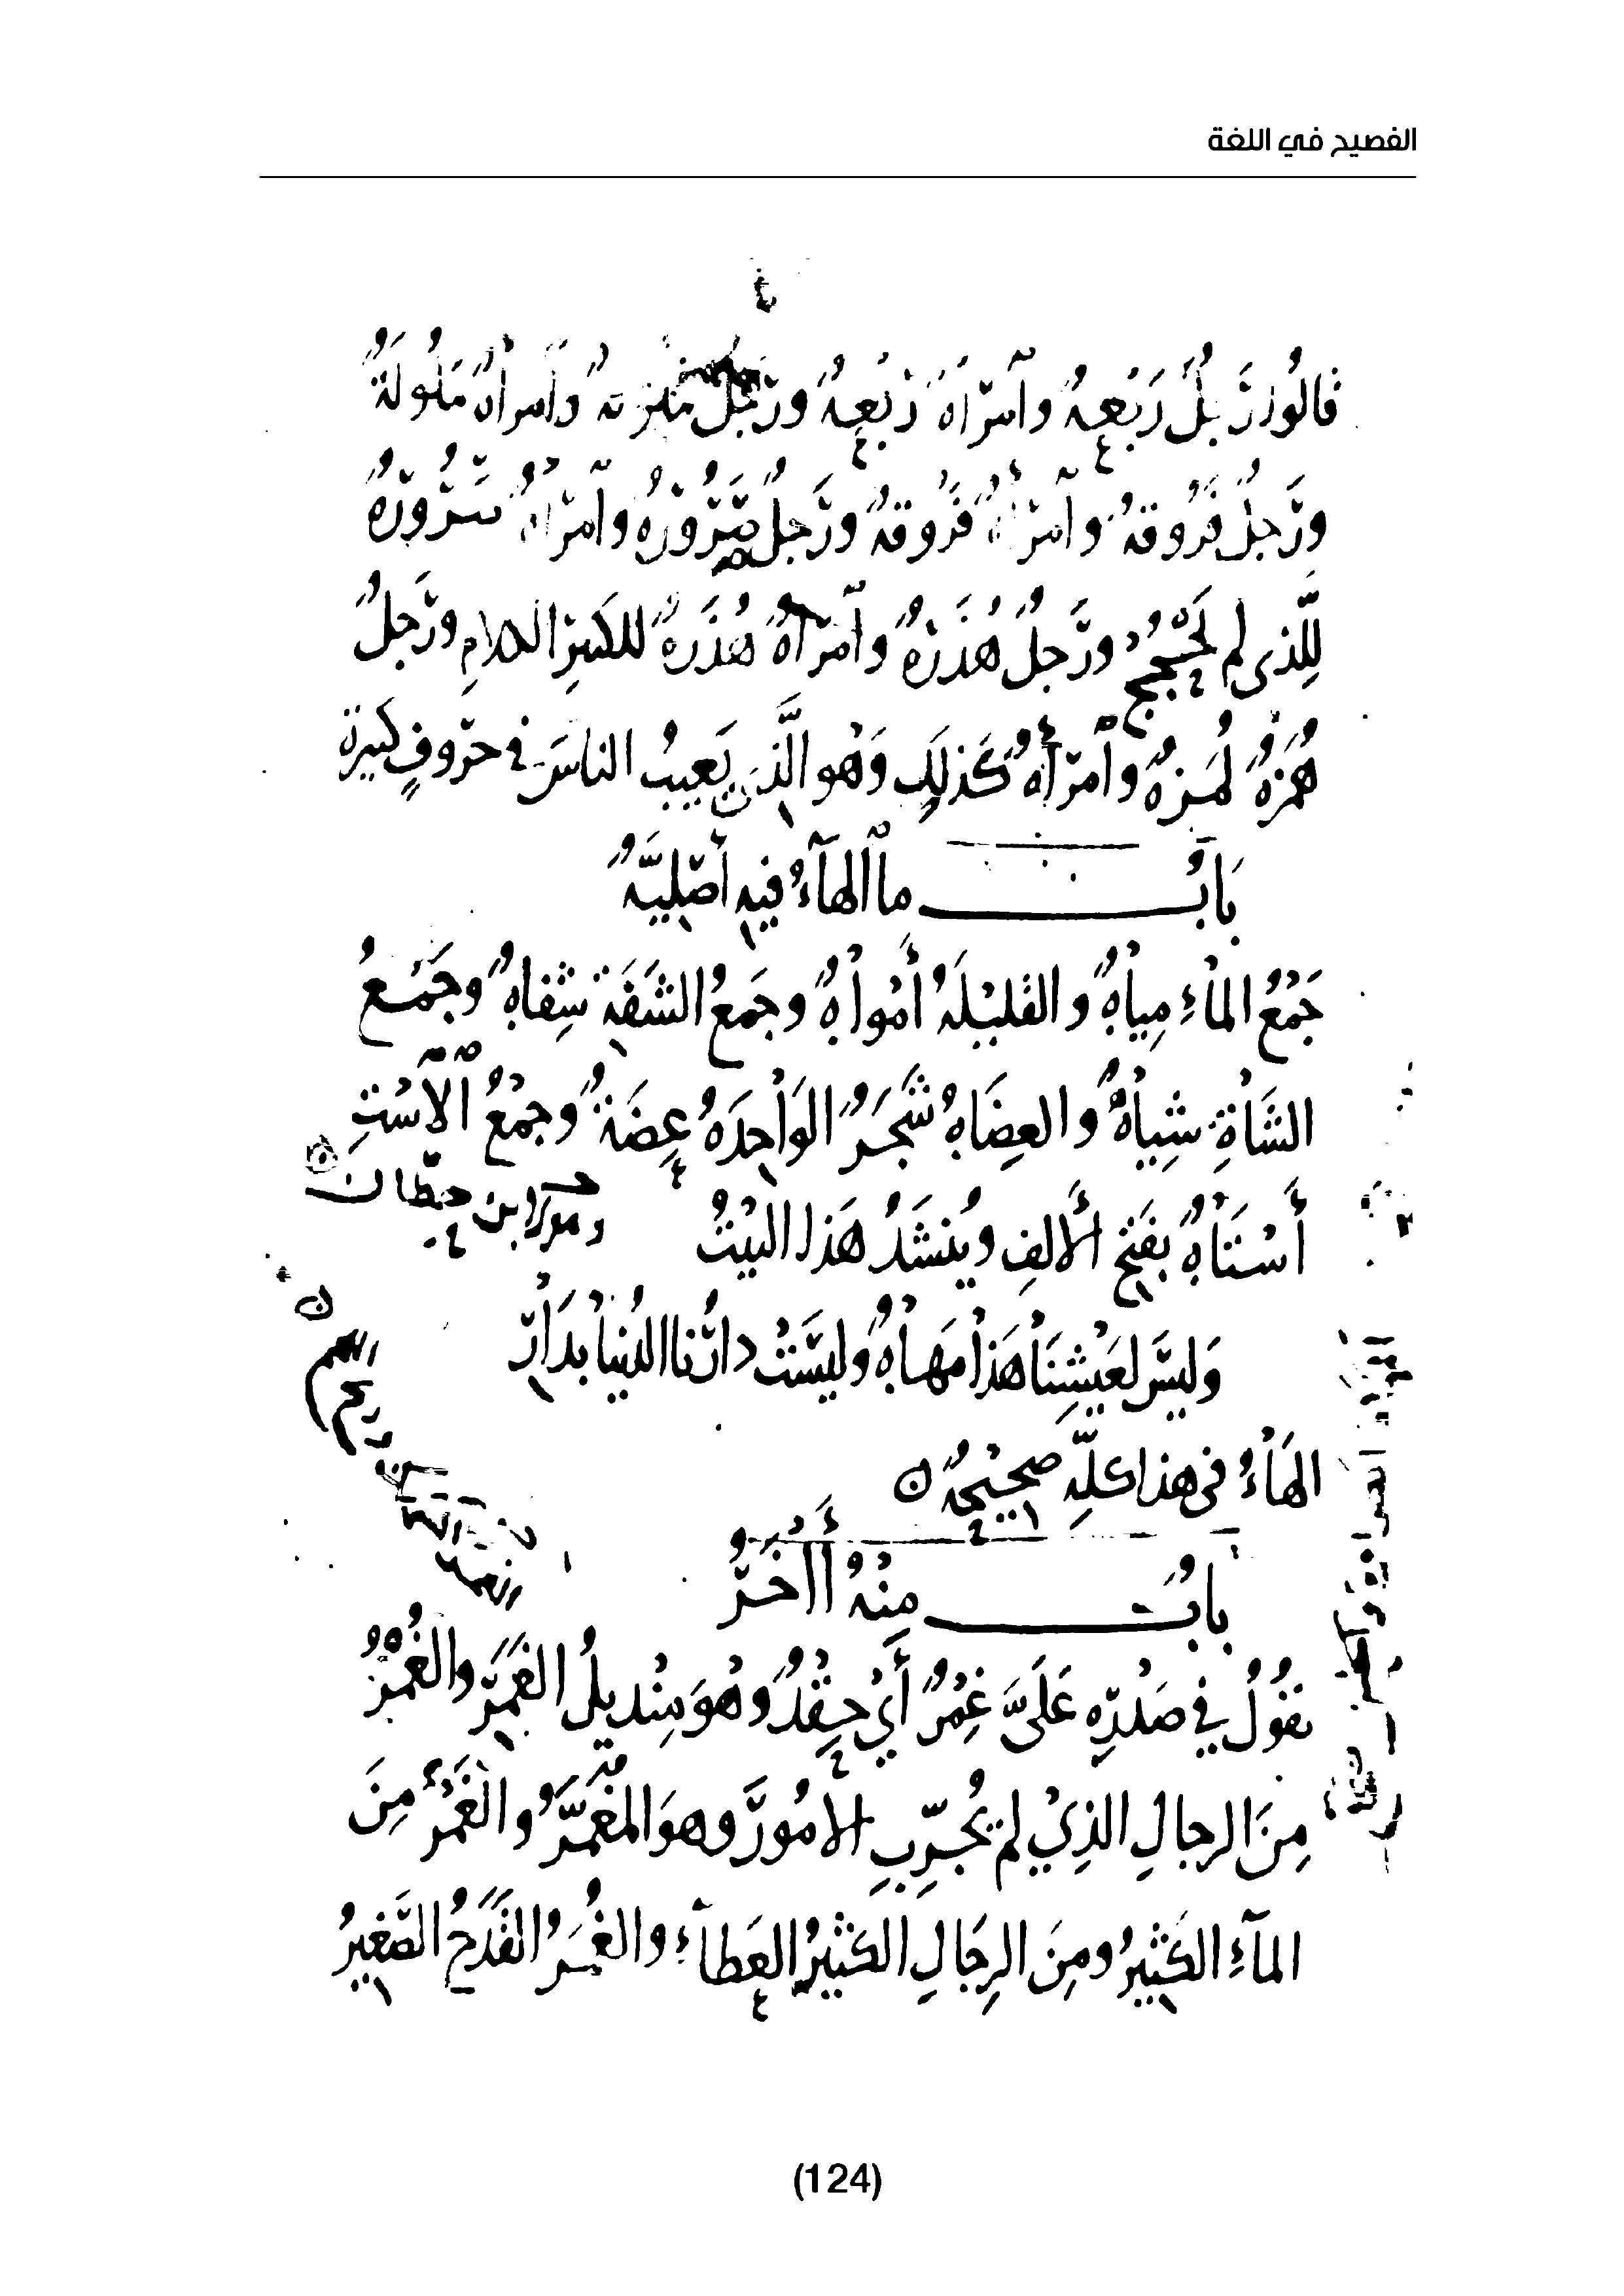 الفصيح في اللغة
قالوا رَجُلٌ رَبْعَةٌ وامرَأةٌ رَبْعَةٌ ورَجُلٌ وامرأةٌ مَلُولَةٌ
ورَجلٌ فَرُوقةٌ وامرَأةٌ فَرُوقةٌ ورَجلٌ صَرُورَةٌ وامرَأةٌ صَرُورَةٌ
لِلَّذي لم يَحْجُجْ ورَجلٌ هُذَرَةٌ وامرَأةٌ هُذَرَةٌ للكثيرِ الكلامِ ورَجلٌ
هُمَزَةٌ لُمَزةٌ وامرَأةٌ كَذلِك وَهُو الَّذي يَعيبُ الناسَ في حرُوفٍ كثيرة
بَابُ ما الهآءُ فيه أَصْليَّةٌ
جَمْعُ المآءِ مِياهٌ والقليْلَةُ أَمْواهٌ وجَمعُ الشَفَة شِفاهٌ وجَمْعُ
الشَاةِ شِيَاهٌ والعِضَاهُ شَجَرٌ الوَاحِدَةُ عِضَةٌ وجمْعُ الاسْتِ
أَسْتَاهٌ بفَتحِ الألفِ ويُنشَدُ هَذا البَيْتُ
وهو لابن حِطّان
وَليسَ لعَيْشِنَا هَذا مَهَاهٌ وليسَتْ دارُنا الدُنيا بدَارْ
الهَاءُ في هذا كلِّه صحيْحةٌ
بابٌ مِنْهُ أاخَرُ
تقُولُ في صَدْرِه عَلَيَّ غِمْرٌ أيْ حِقْدٌ وهُوَ مِنْديلُ الغَمَرِ والغُمْرُ
مِنَ الرجالِ الذِيْ لم يُجَرِّبِ الامُورَ وهوَ المُغَمَّرُ والغَمْرُ مِنَ
المآءِ الكَثيرُ ومِنَ الرِجَالِ الكَثيرُ العَطآءِ والغُمَرُ القَدَحُ الصَّغيرُ
(124)